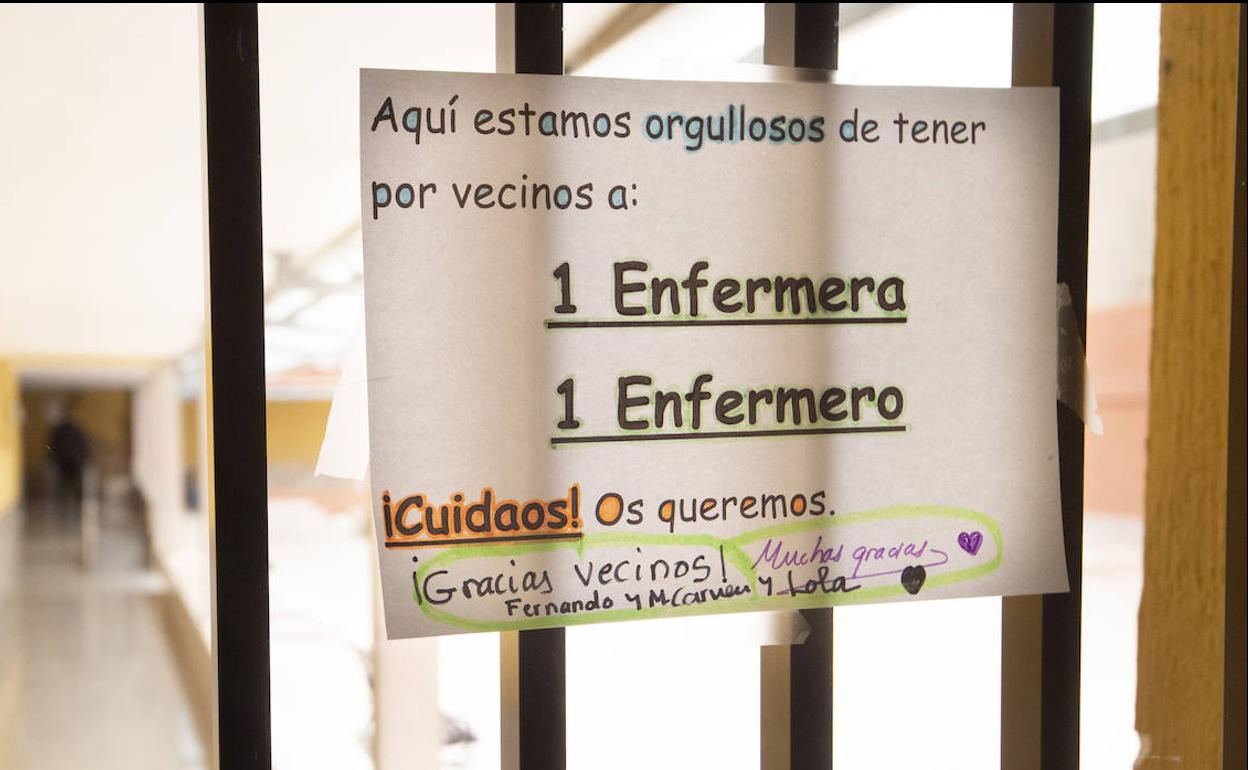 Aquí estamos orgullosos de tener
por vecinos a:
1 Enfermera
1 Enfermero
¡Cuidaos! Os queremos.
¡Gracias vecinos! Muchas gracias
Fernando y M.Carmen y Lola